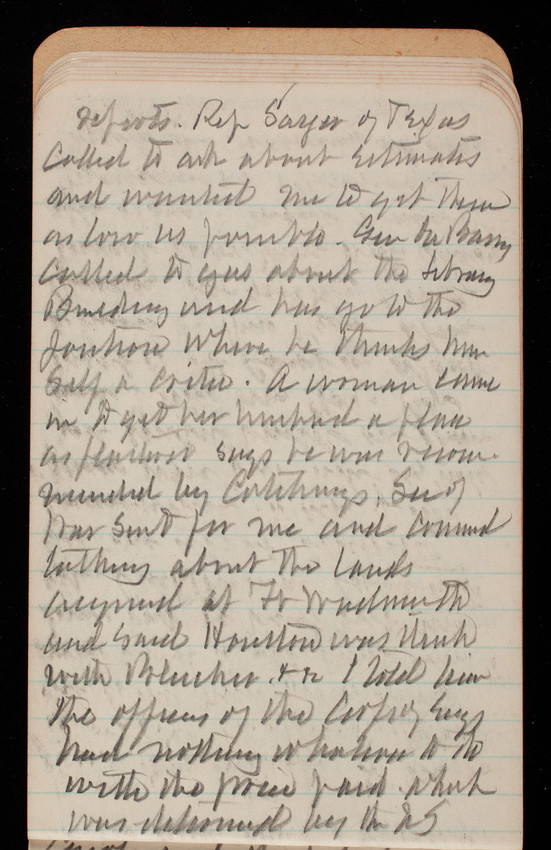 reports. Rep Sayer of Texas
Called to ask about estimates
and wanted me to get them
as low as possible. Gen
called to see about the Library
Building and has got to the
position where he thinks him
self a critic. A woman came
in to get her husband a place
as says he was recom-
mended by Catchings. Sec of
War sent for me and commenced
talking about the lands
acquired at Ft Wadsworth
and said Houston was thick
with &c I told him
the officers of the Corps of Engs
had nothing whatever to do
with the price paid. which
was determined by the US